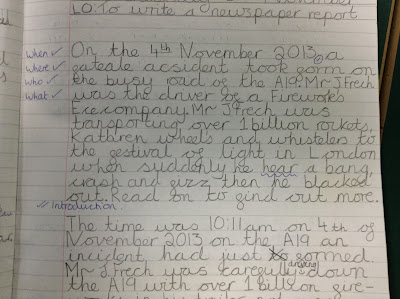 L.O: To write a newspaper report
when ✓ On the 4th November 2013, a
where ✓ gateale acsident took gorm on
who ✓ the busy road of the A19. Mr J Frech
what ✓ was the driver be a Fireworks
company. Mr J Frech was
transporting over 1 billion rockets,
Kathren wheels and whistelers to
the gestival of light in London
when suddonly he hear a bang,
crash and gizz then he blacked
out. Read on to gind out more.
// Introduction.
The time was 10:11am on 4th of
November 2013 on the A19 an
incident had just gormed.
driving
Mr J Frech was caregully down
the A19 with over 1 billion gire-